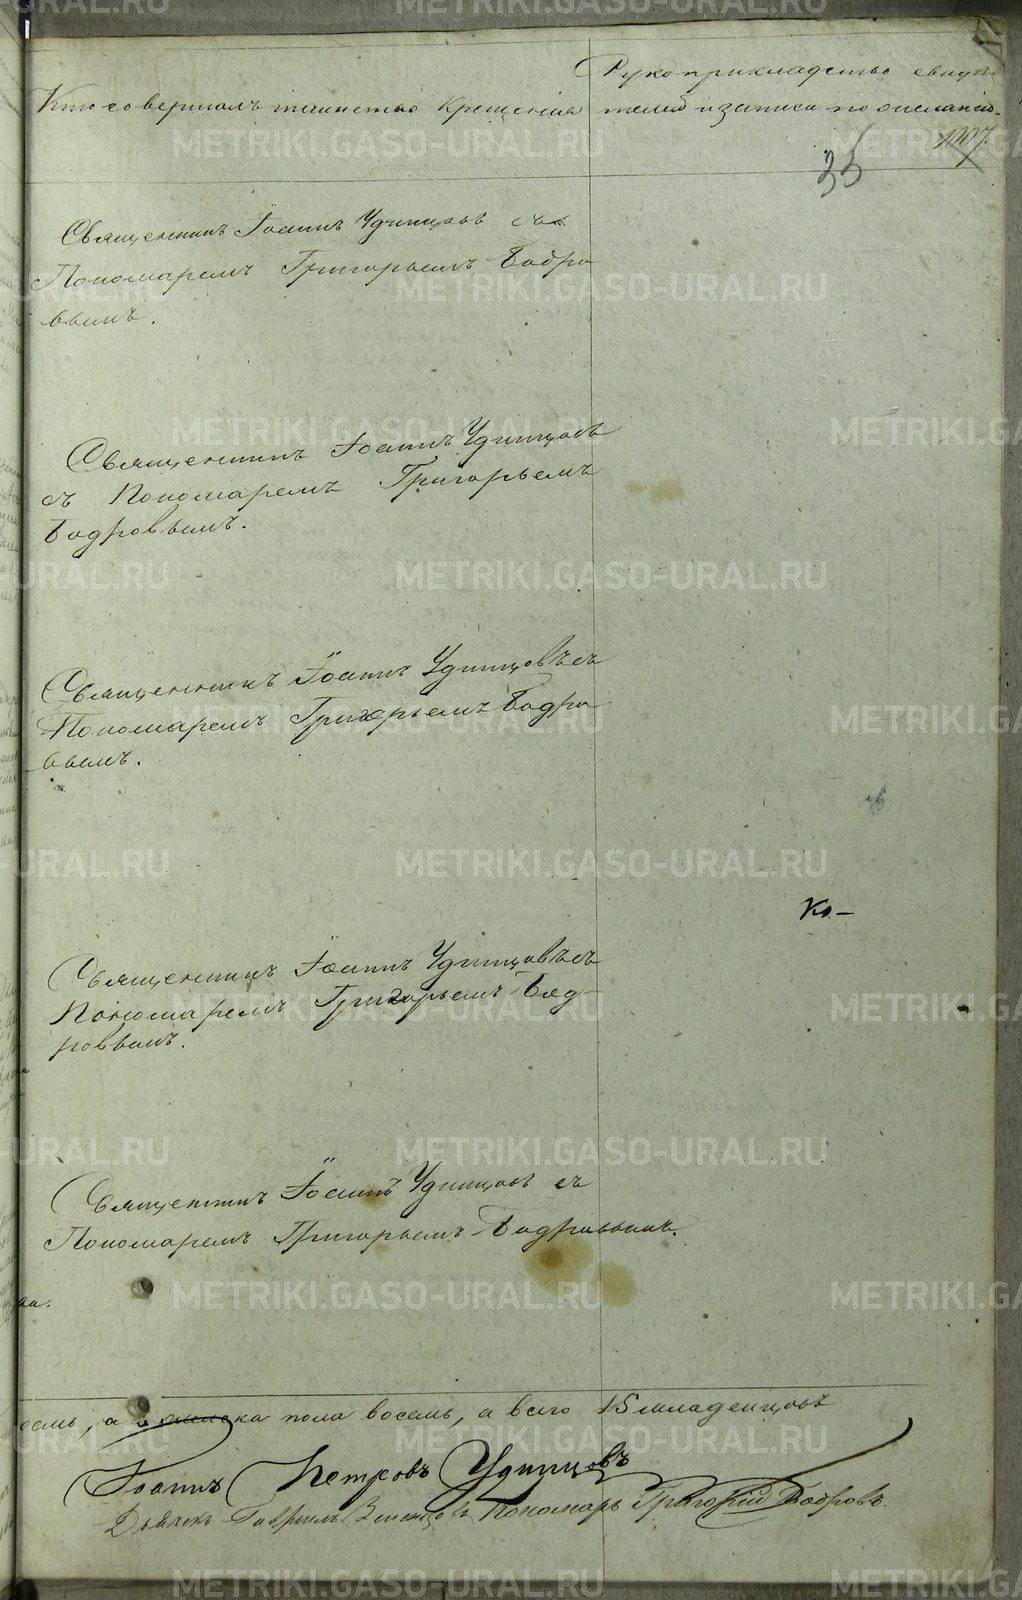 Рукоприкладство свидѣ
Кто совершалъ таинство Крещенія
телей и записи по желанію.
1207.
35
Священникъ Іоаннъ Удинцовъ съ
Пономаремъ Григорьемъ Бодро
вымъ.
Священникъ Іоаннъ Удинцовъ
съ Пономаремъ Григорьемъ
Бодровымъ.
Священникъ Іоаннъ Удинцовъ съ
Пономаремъ Григорьемъ Бодро
вымъ.
Ко-
Священникъ Іоаннъ Удинцовъ съ
Пономаремъ Григорьемъ Бод-
ровымъ.
Священникъ Іоаннъ Удинцовъ съ
Пономаремъ Григорьемъ Бодровымъ.
семь, а женска пола восемь, а всего 15 младенцовъ
Іоаннъ Петровъ Удинцовъ
Дьячекъ Гавриилъ Пономарь Григорій Бодровъ.
METRIKI.GASO-URAL.RU